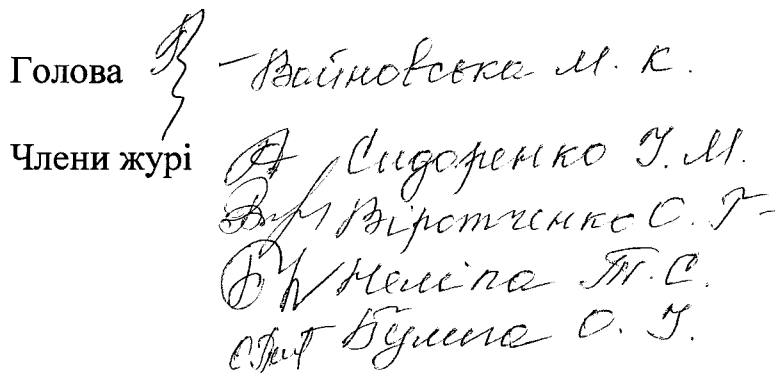 Голова – Войновська М. К.
Члени журі Сидоренко І. М.
Віротченко О. Г.
Неліпа Т. С.
Булига О. І.